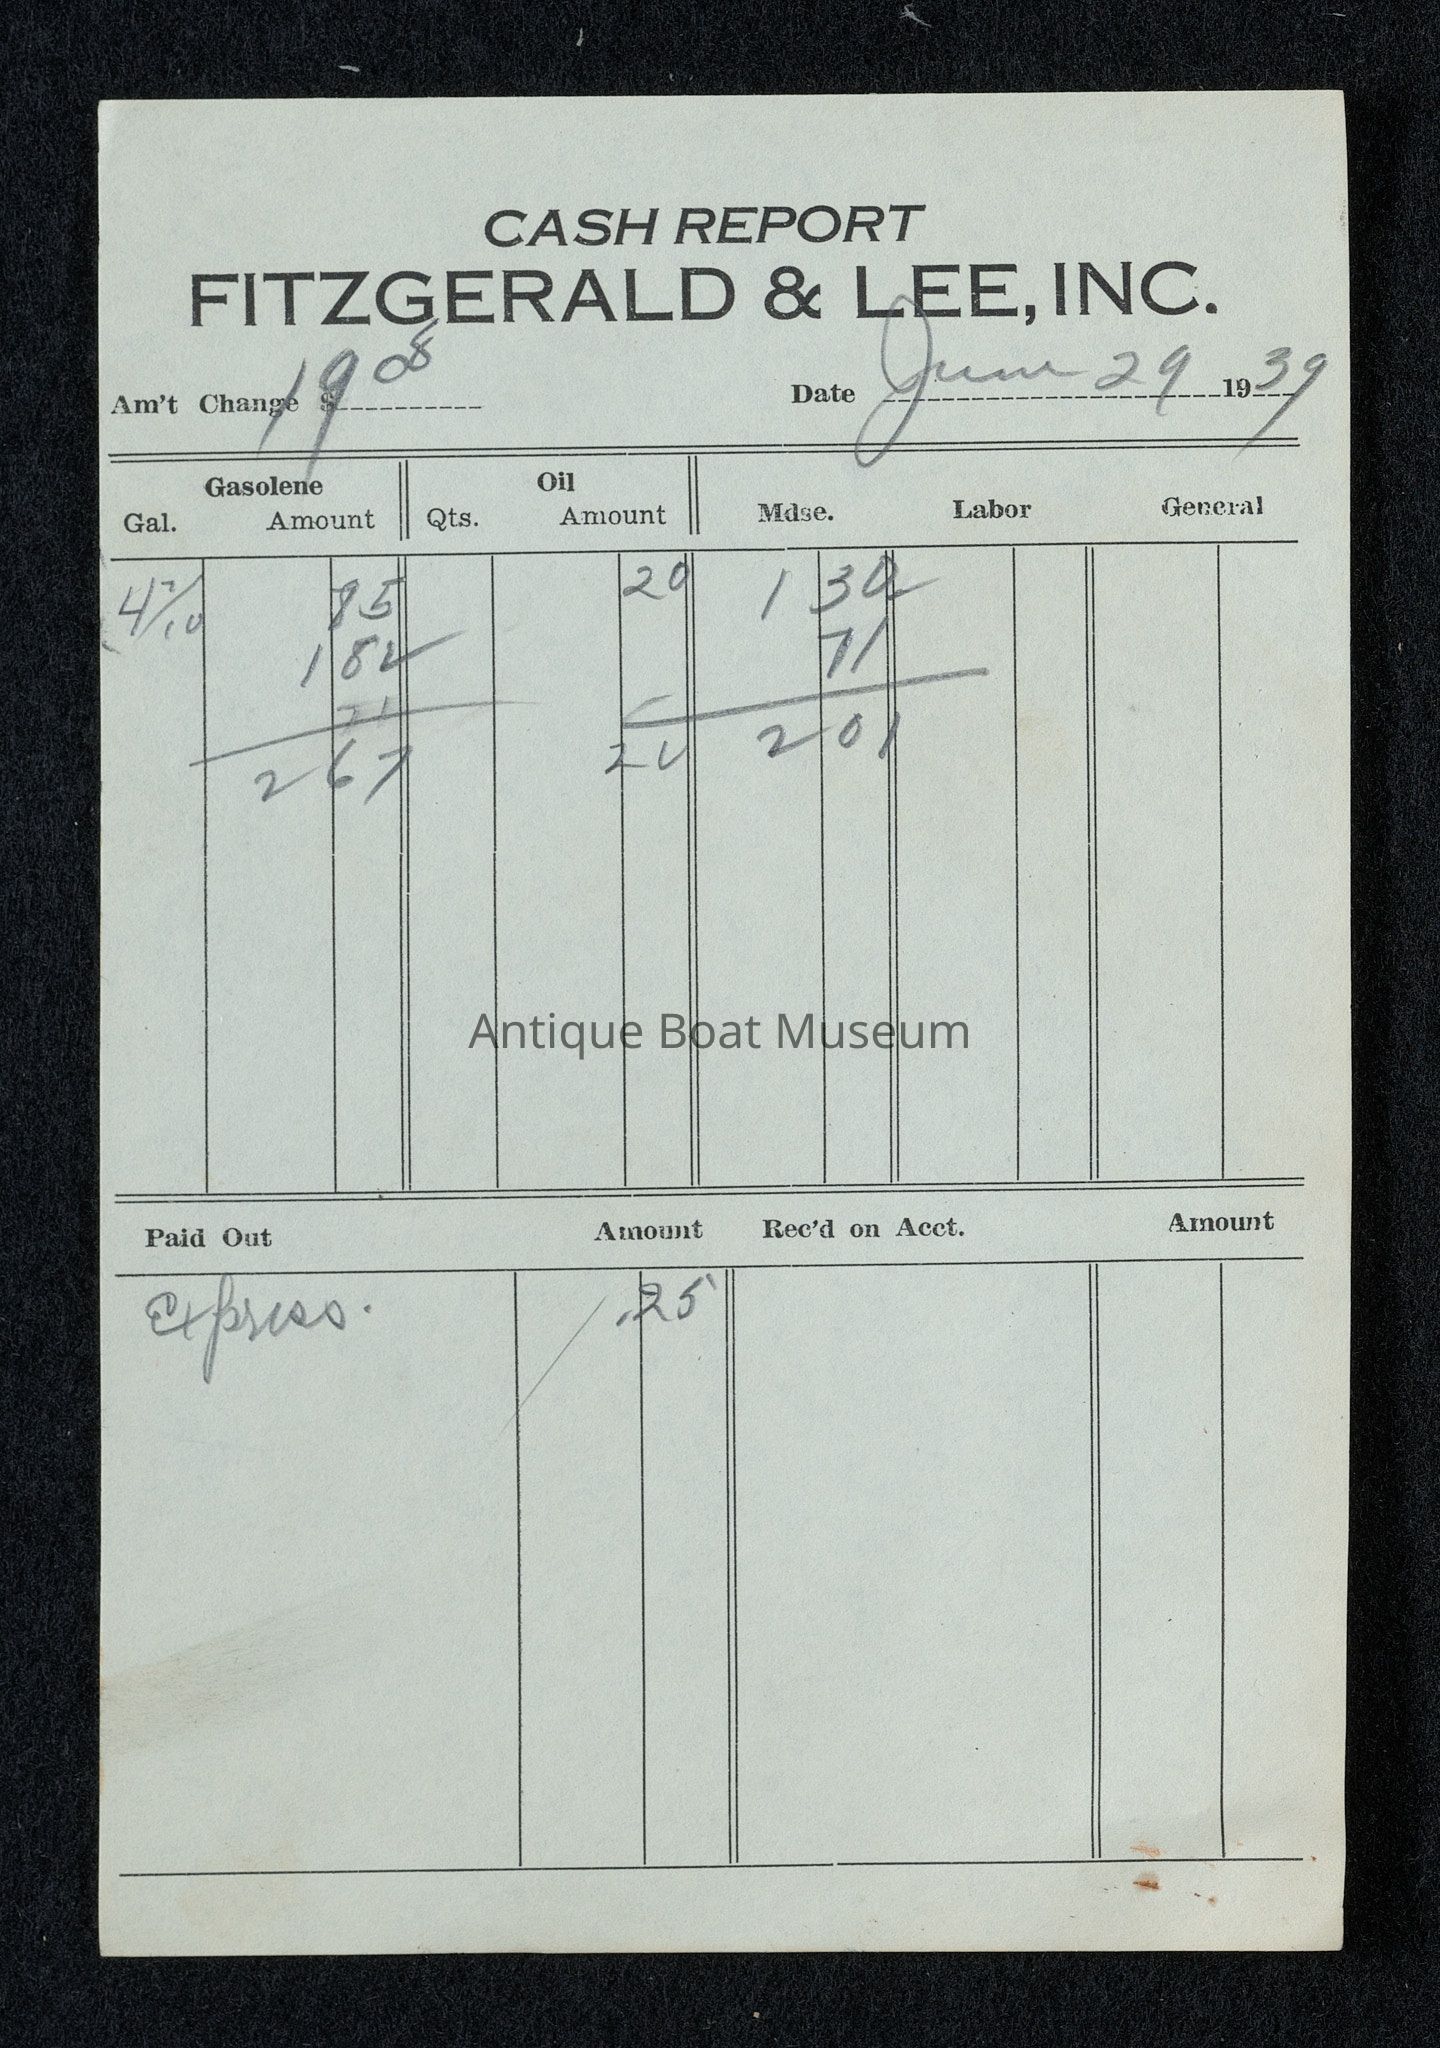 CASH REPORT
FITZGERALD & LEE, INC.
Am't Change $ 19 08 Date June 29 1939
Gasolene Oil
Gal. Amount Qts. Amount Mdse. Labor General
85 20 1 30
1 82 71
2 67 2 01
Antique Boat Museum
Paid Out Amount Rec'd on Acct. Amount
Express. .25